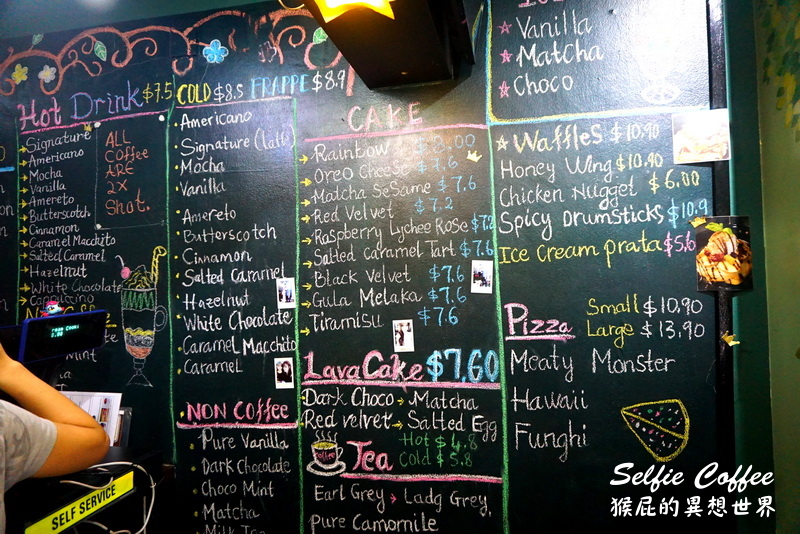 Hot Drink $7.5
Signature
Americano
Mocha
Vanilla
Amereto
Butterscotch
Cinnamon
Caramel Macchito
Salted Caramel
Hazelnut
White Chocolate
Cappucino
ALL
Coffee
ARE
2X
Shot.
SELF SERVICE
COLD $8.5 FRAPPE $8.9
Americano
Signature (latte)
Mocha
Vanilla
Amereto
Butterscotch
Cinnamon
Salted Caramel
Hazelnut
White Chocolate
Caramel Macchito
Caramel
NON COFFEE
Pure Vanilla
Dark Chocolate
Choco Mint
Matcha
CAKE
Rainbow $8.00
Oreo Cheese $7.6
Matcha SeSame $7.6
Red Velvet $7.2
Raspberry Lychee Rose $7.2
Salted Caramel Tart $7.6
Black Velvet $7.6
Gula Melaka $7.6
Tiramisu $7.6
Lava Cake $7.60
Dark Choco Matcha
Red velvet Salted Egg
Tea
Hot $4.8
Cold $5.8
Earl Grey Lady Grey,
Pure Camomile
Vanilla
Matcha
Choco
Waffles $10.90
Honey Wing $10.90
Chicken Nugget $6.00
Spicy Drumsticks $10.9
Ice Cream prata $5.6
Pizza
Small $10.90
Large $13.90
Meaty Monster
Hawaii
Funghi
Selfie Coffee
猴屁的異想世界